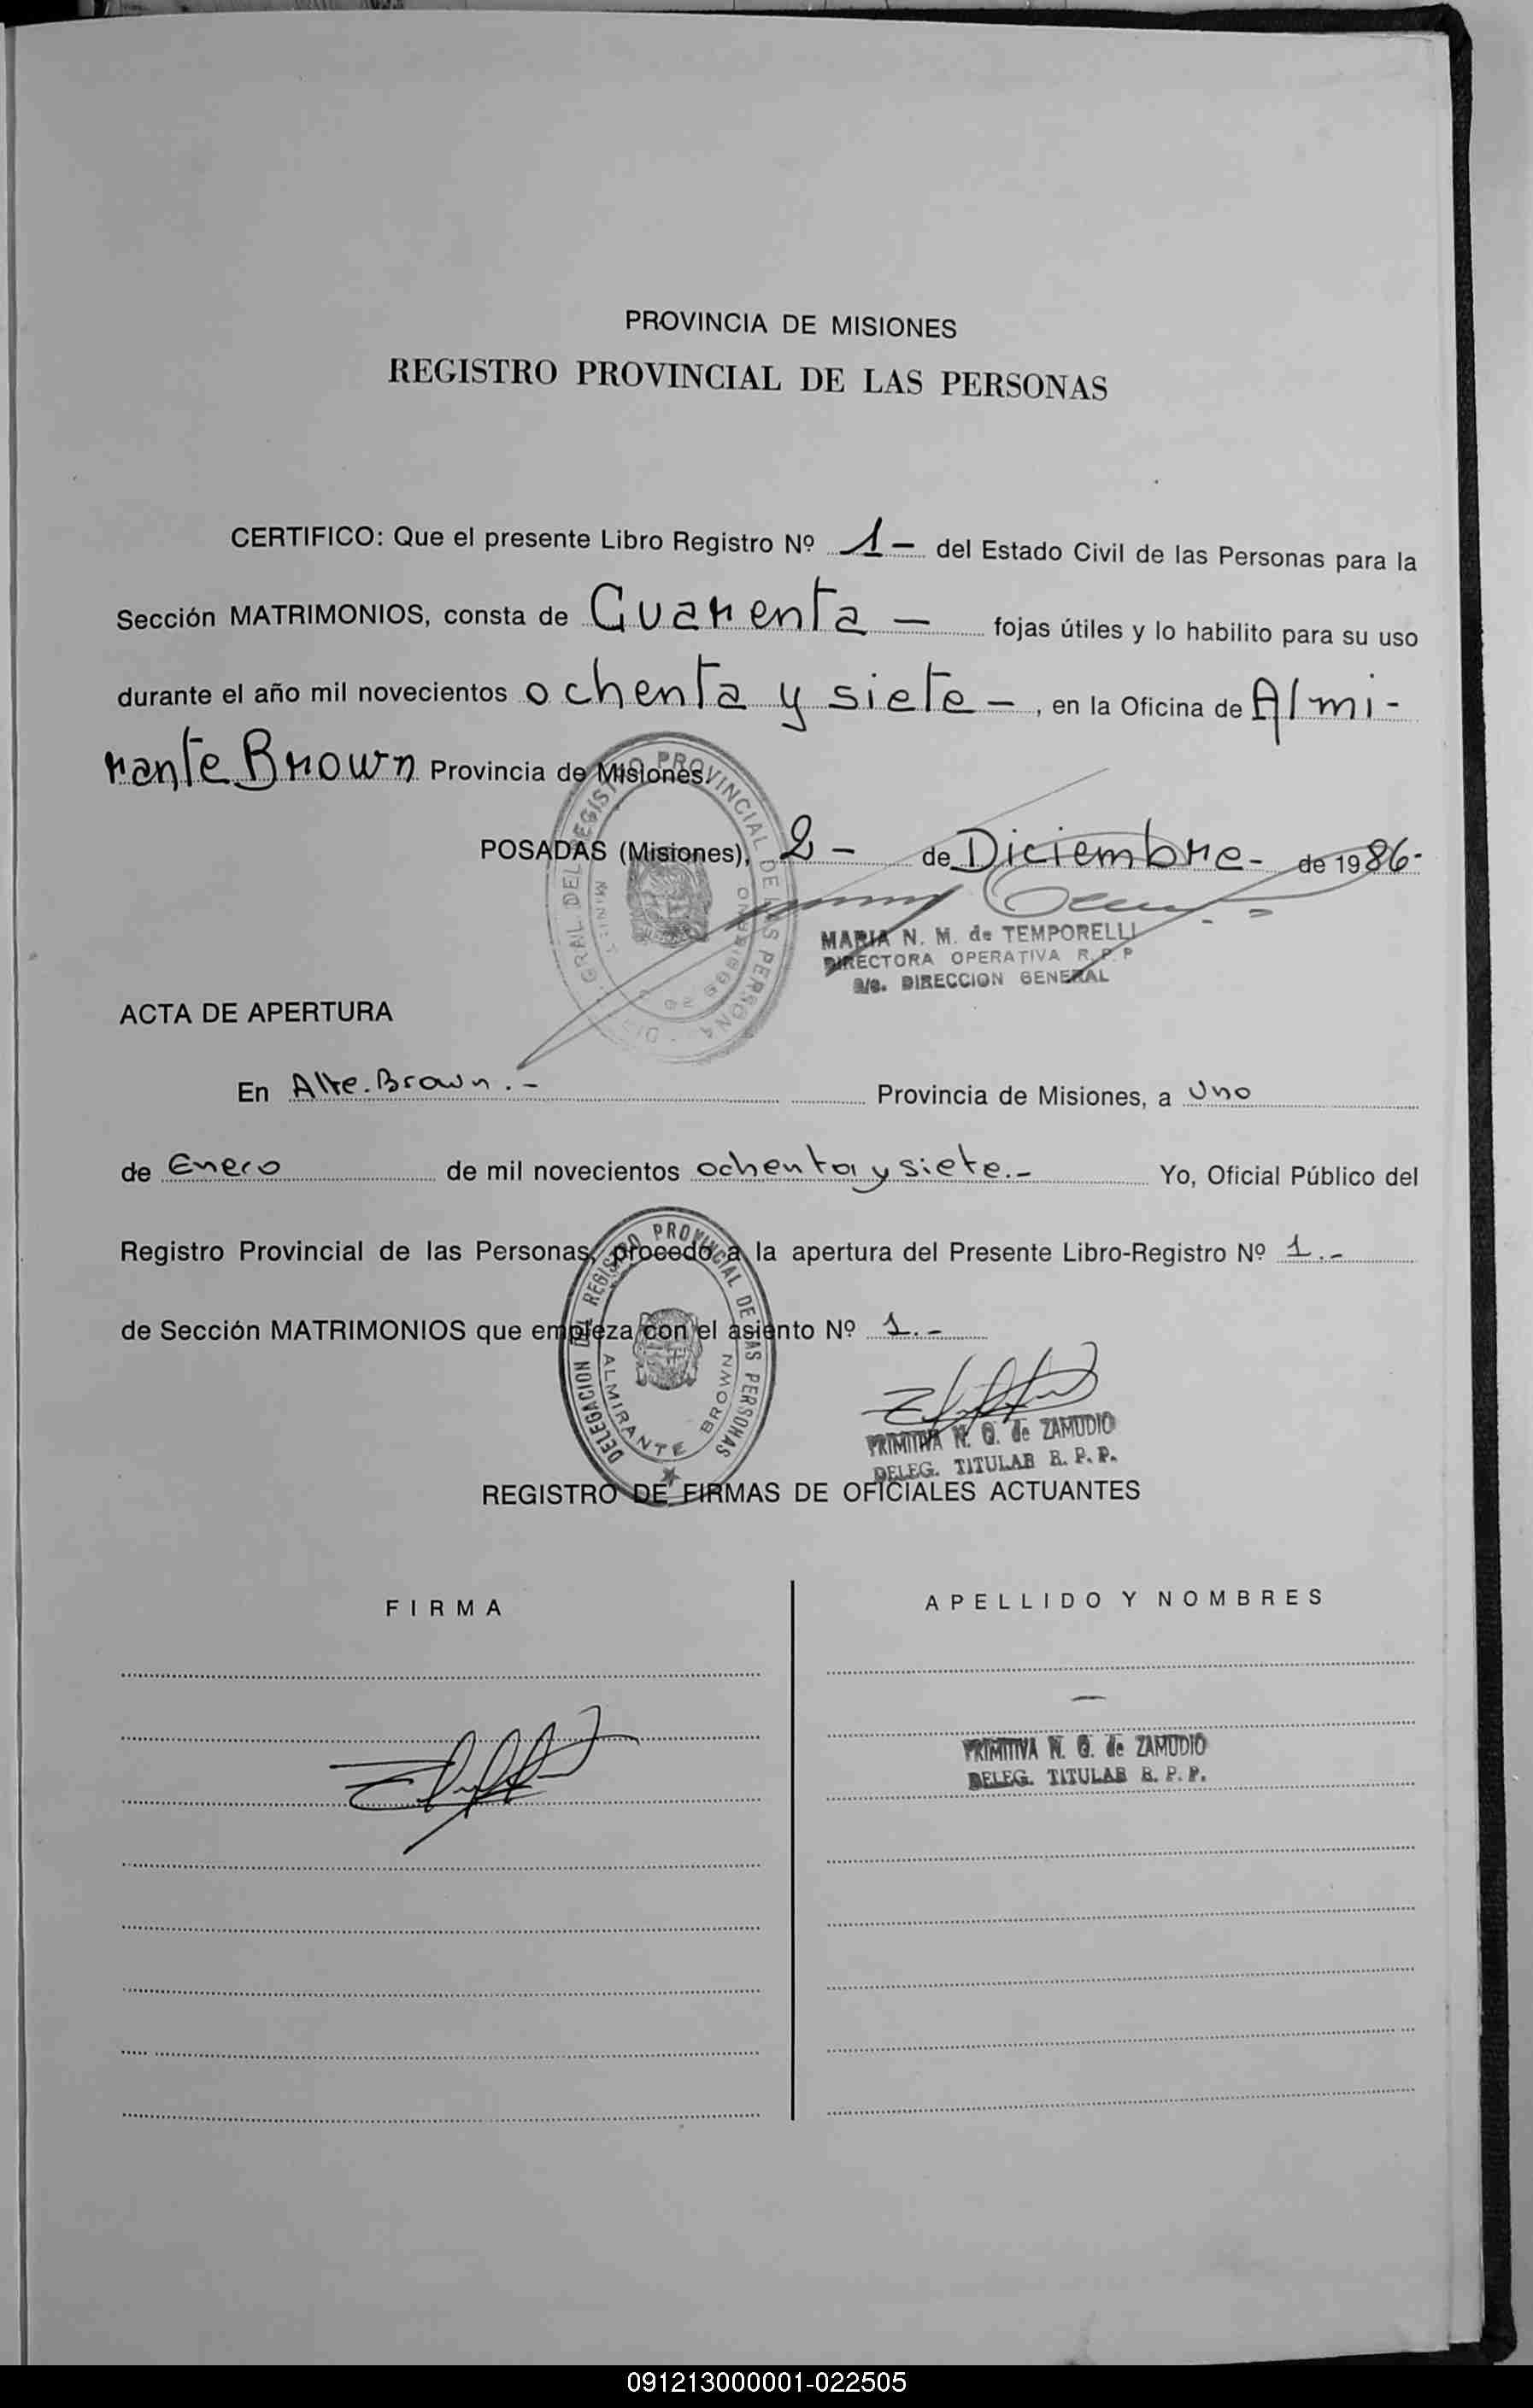 PROVINCIA DE MISIONES
REGISTRO PROVINCIAL DE LAS PERSONAS
CERTIFICO: Que el presente Libro Registro Nº 1 - del Estado Civil de las Personas para la
Sección MATRIMONIOS, consta de Cuarenta - fojas útiles y lo habilito para su uso
durante el año mil novecientos ochenta y siete - , en la Oficina de Almi-
rante Brown Provincia de Misiones.
POSADAS (Misiones), 2 - de Diciembre - de 1986-
MARIA N. M. de TEMPORELLI
DIRECTORA OPERATIVA R. P. P
a/c. DIRECCION GENERAL
ACTA DE APERTURA
En Alte. Brown . - Provincia de Misiones, a Uno
de Enero de mil novecientos ochenta y siete. - Yo, Oficial Público del
Registro Provincial de las Personas, procedo a la apertura del Presente Libro-Registro Nº 1. -
de Sección MATRIMONIOS que empieza con el asiento Nº 1. -
DELEGACION DEL REGISTRO PROVINCIAL DE LAS PERSONAS
ALMIRANTE BROWN
PRIMITIVA N. G. de ZAMUDIO
DELEG. TITULAR R. P. P.
REGISTRO DE FIRMAS DE OFICIALES ACTUANTES
FIRMA APELLIDO Y NOMBRES
PRIMITIVA N. G. de ZAMUDIO
DELEG. TITULAR R. P. P.
091213000001-022505